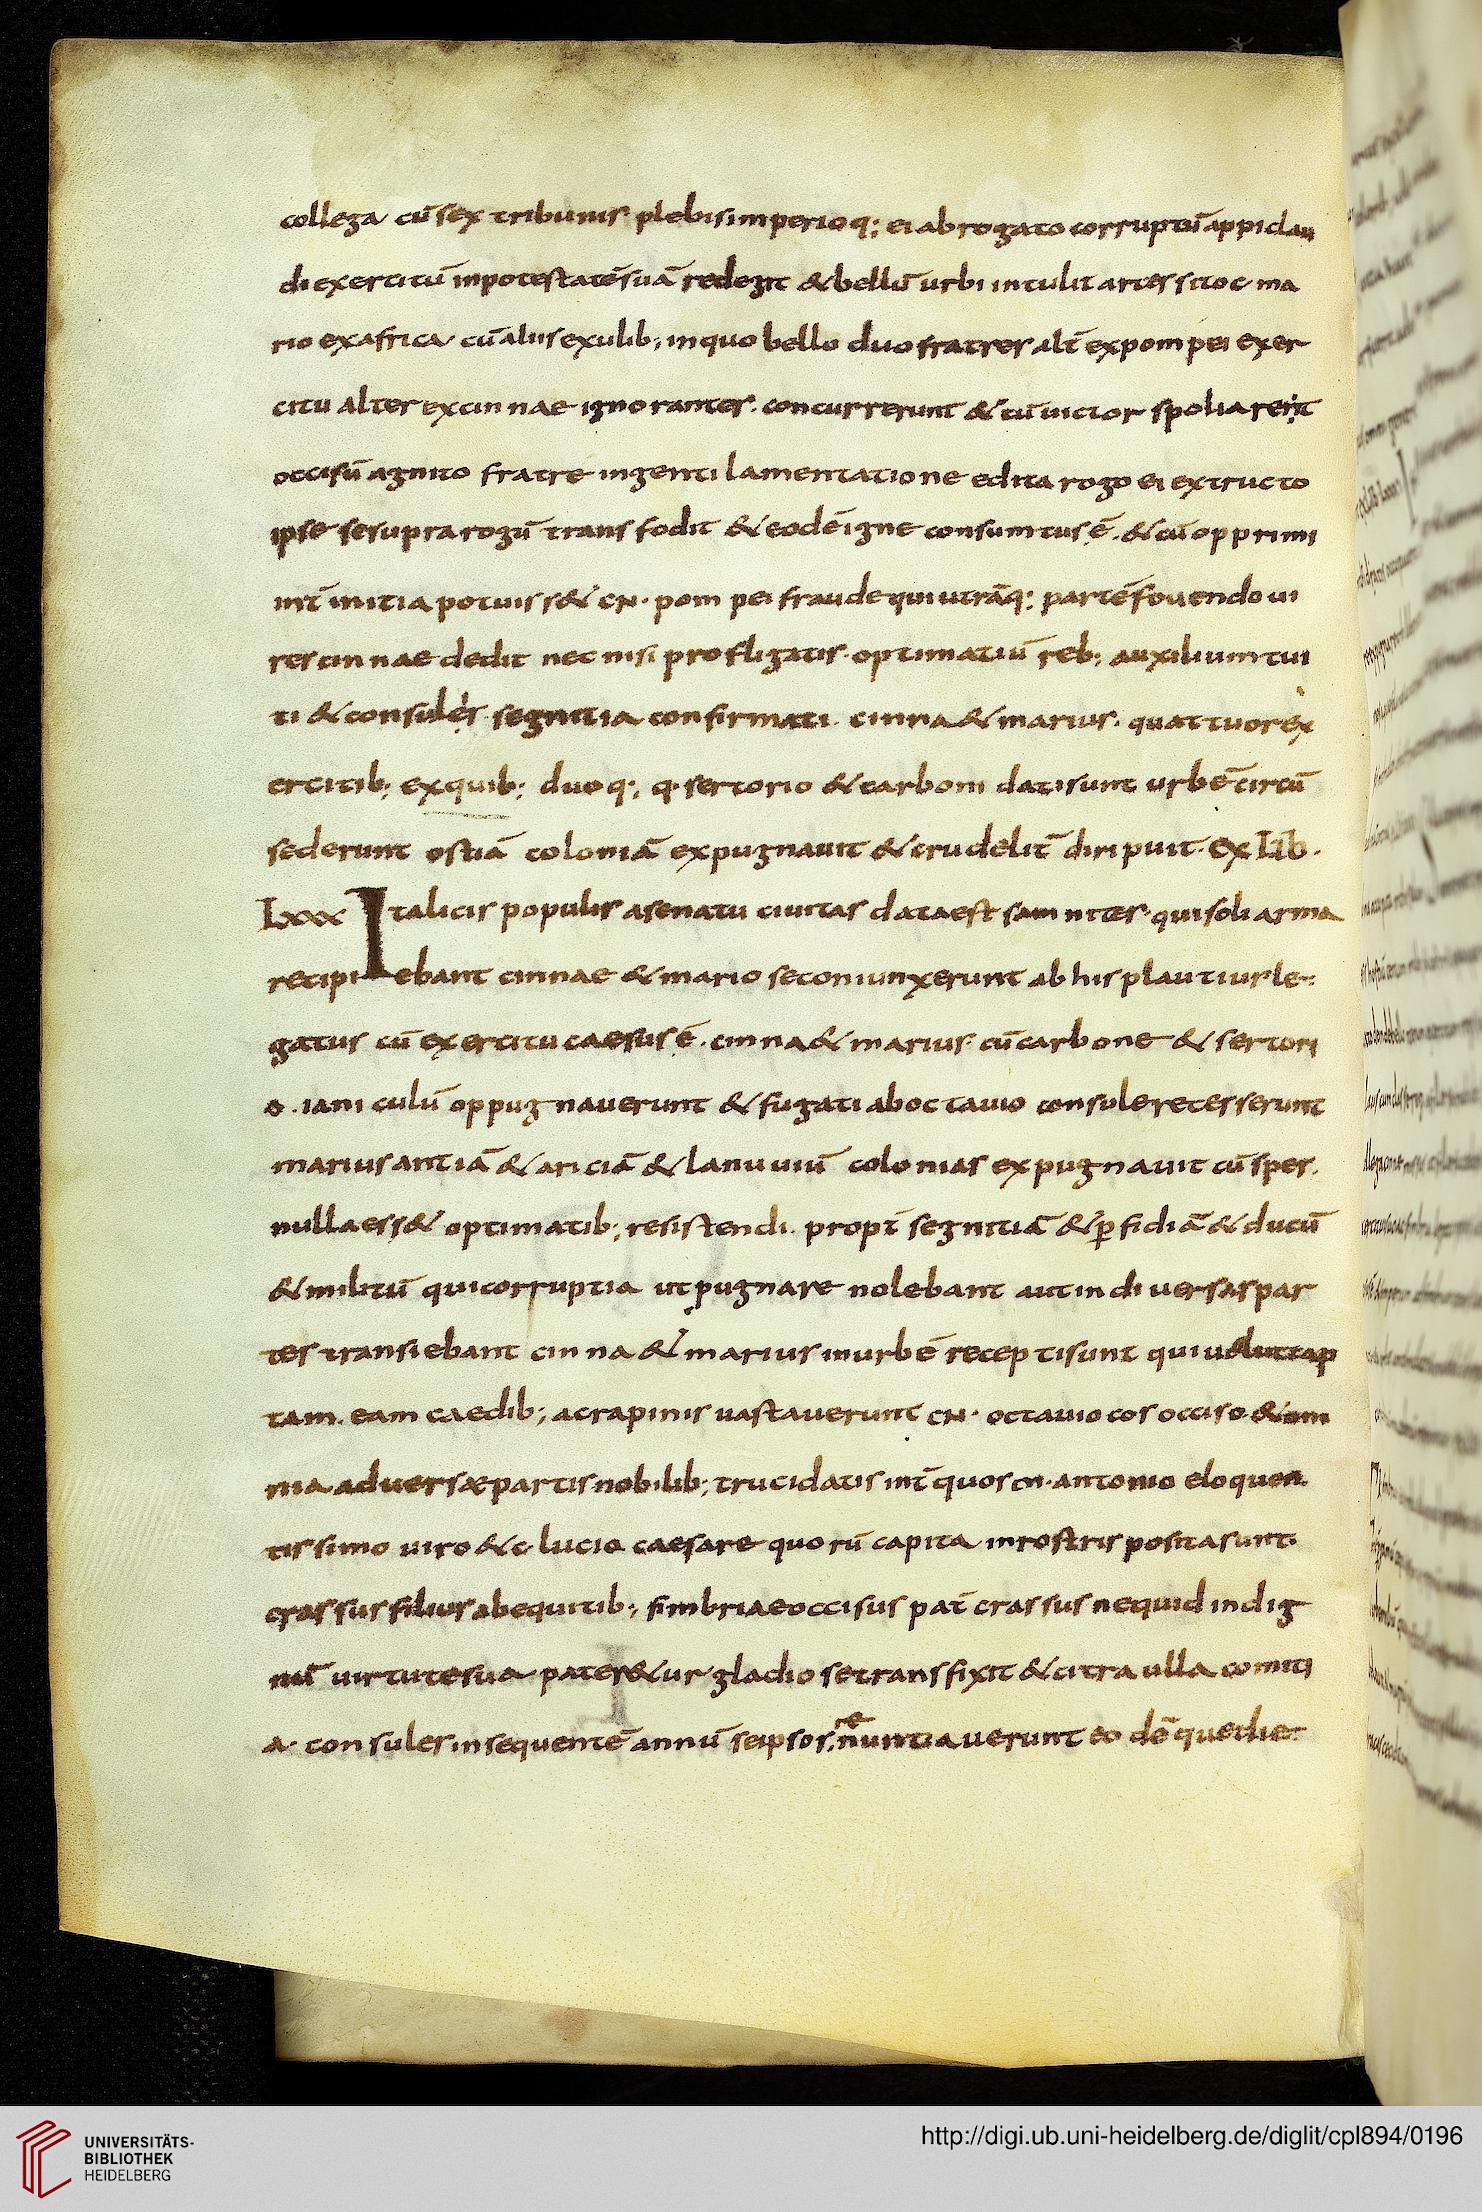 collega cū sex tribunis plebis imperioq; ei abrogato corruptū appi clau
di exercitū in potestatē suā redegit & bellū urbi intulit arcessito c ma
rio ex africa cū aliis exulib; in quo bello duo fratres alt̄ ex pompei exer
citu alter ex cinnae ignorantes. concurrerunt & cū uictor spoliarerit
occisū agnito fratre ingenti lamentatione edita rogo ei extructo
ipse se supra rogū transfodit & eodē igne consumtus ē. & cū opprimi
int̄ initia potuiss& CN. pompei fraude qui utrāq; partē fouendo ui
res cinnae dedit nec nisi profligatis optimatiū reb; auxilium tui
ti & consules segnitia confirmati. cinna & marius. quattuor ex
ercitib; ex quib; duo q; q. sertorio & carboni dati sunt urbē circū
sederunt ostiā coloniā expugnauit & crudelit̄ diripuit. Ex Lib.
Lxxx Italicis populis a senatu ciuitas data est samnites. qui soli arma
recipiebant cinnae & mario se coniunxerunt ab his plautius le
gatus cū exercitu caesus ē. cinna & marius. cū carbone & sertori
o. ianiculū oppugnauerunt & fugati ab octauio consule recesserunt
marius antiā & ariciā & lanuuiū colonias expugnauit cū spes.
nulla ess& optimatib; resistendi. propt̄ segnitiā & p̄fidiā & ducū
& militū qui corruptia ut pugnare nolebant aut in diuersas par
tes transiebant cinna & marius in urbē recepti sunt qui uelut cap
tam. eam caedib; ac rapinis uastauerunt CN. octauio cos occiso & om
nia aduersæ partis nobilib; trucidatis int̄ quos cn. antonio eloquen
tissimo uiro & c lucio caesare quorū capita in rostris posita sunt.
crassus filius ab equitib; fimbriae occisus pat̄ crassus ne quid indig
nū uirtute sua pater&ur gladio se transfixit & citra ulla comiti
a. consules in sequentē annū se ipsos re
nuntiauerunt eodē que die
UNIVERSITÄTS-
BIBLIOTHEK
HEIDELBERG
http://digi.ub.uni-heidelberg.de/diglit/cpl894/0196